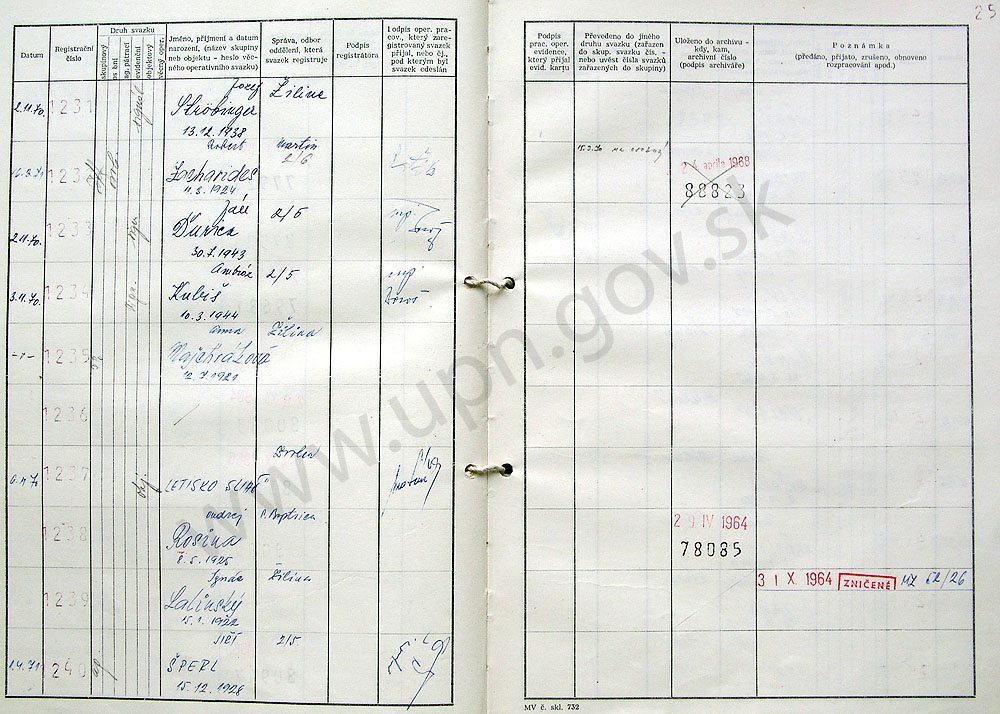 25
Datum
Registrační
číslo
Druh svazku
skupinový
osobní
ag. pátrací
evidenční
objektový
věcný oper.
Jméno, příjmení a datum
narození, (název skupiny
neb objektu - heslo věc-
ného operativního svazku)
Správa, odbor
oddělení, která
svazek registruje
Podpis
registrátora
Podpis oper. pra-
cov., který zare-
gistrovaný svazek
přijal, nebo čj.,
pod kterým byl
svazek odeslán
Podpis
prac. oper.
evidence,
který přijal
evid. kartu
Převedeno do jiného
druhu svazku (zařazen
do skup. svazku čís. -
- nebo uvést čísla svazků
zařazených do skupiny)
Uloženo do archivu -
kdy, kam,
archivní číslo
(podpis archiváře)
Poznámka
(předáno, přijato, zrušeno, obnoveno
rozpracování apod.)
Jozef Žilina
2.11.70. 1231 signál Ströbinger
13.12.1938
Robert Martin
1232 Zochandes 2/6
11.3.1924
24. apríla 1968
88823
Ján
1233 Ďurica 2/5
2.11.70.
30.7.1943
Ambróz 2/5
3.11.70. 1234 Kubiš
10.3.1944
Anna Žilina
-"- 1235
12.7.1921
1236
Zvolen
1237 LETISKO SLIAČ
Ondrej P. Bystrica
1238 Rosina
8.5.1925
29 IV 1964
78085
Ignác Žilina
1239 Lalinský
15.1.1922
31 X. 1964 ZNIČENÉ MZ 52/26
2/5
1.4.71 1240 ŠPERL
15.12.1928
MV č. skl. 732
www.upn.gov.sk